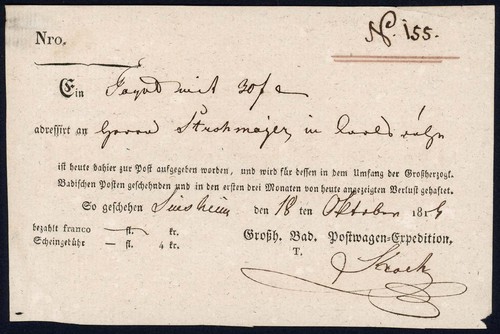 No. 155.
Nro.
Ein Paquet mit 30 f
adressirt an Herrn Strohmayer, in Carlsruhe
ist heute dahier zur Post aufgegeben worden, und wird für dessen in dem Umfang der Großherzogl.
Badischen Posten geschehnden und in den ersten drei Monaten von heute angezeigten Verlust gehaftet.
So geschehen Sinsheim den 18 ten Oktober
bezahlt franco — fl. kr.
Scheingebühr — fl. 4 kr.
Großh. Bad. Postwagen-Expedition.
T.